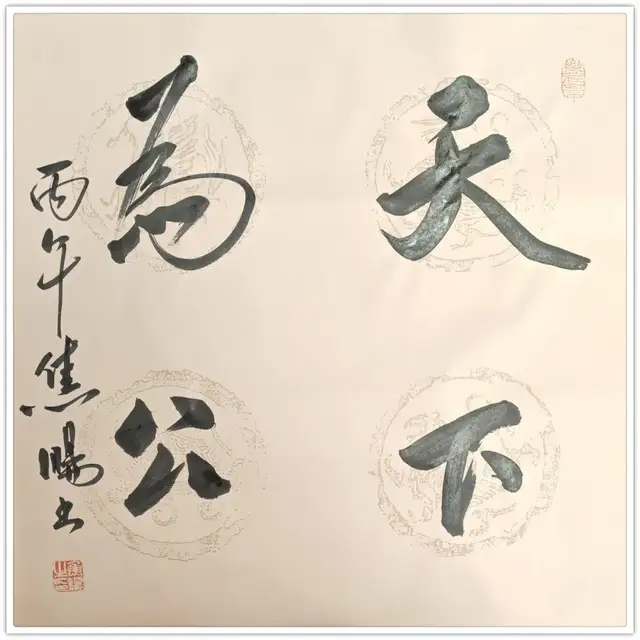 天下
為公
丙午焦暘书